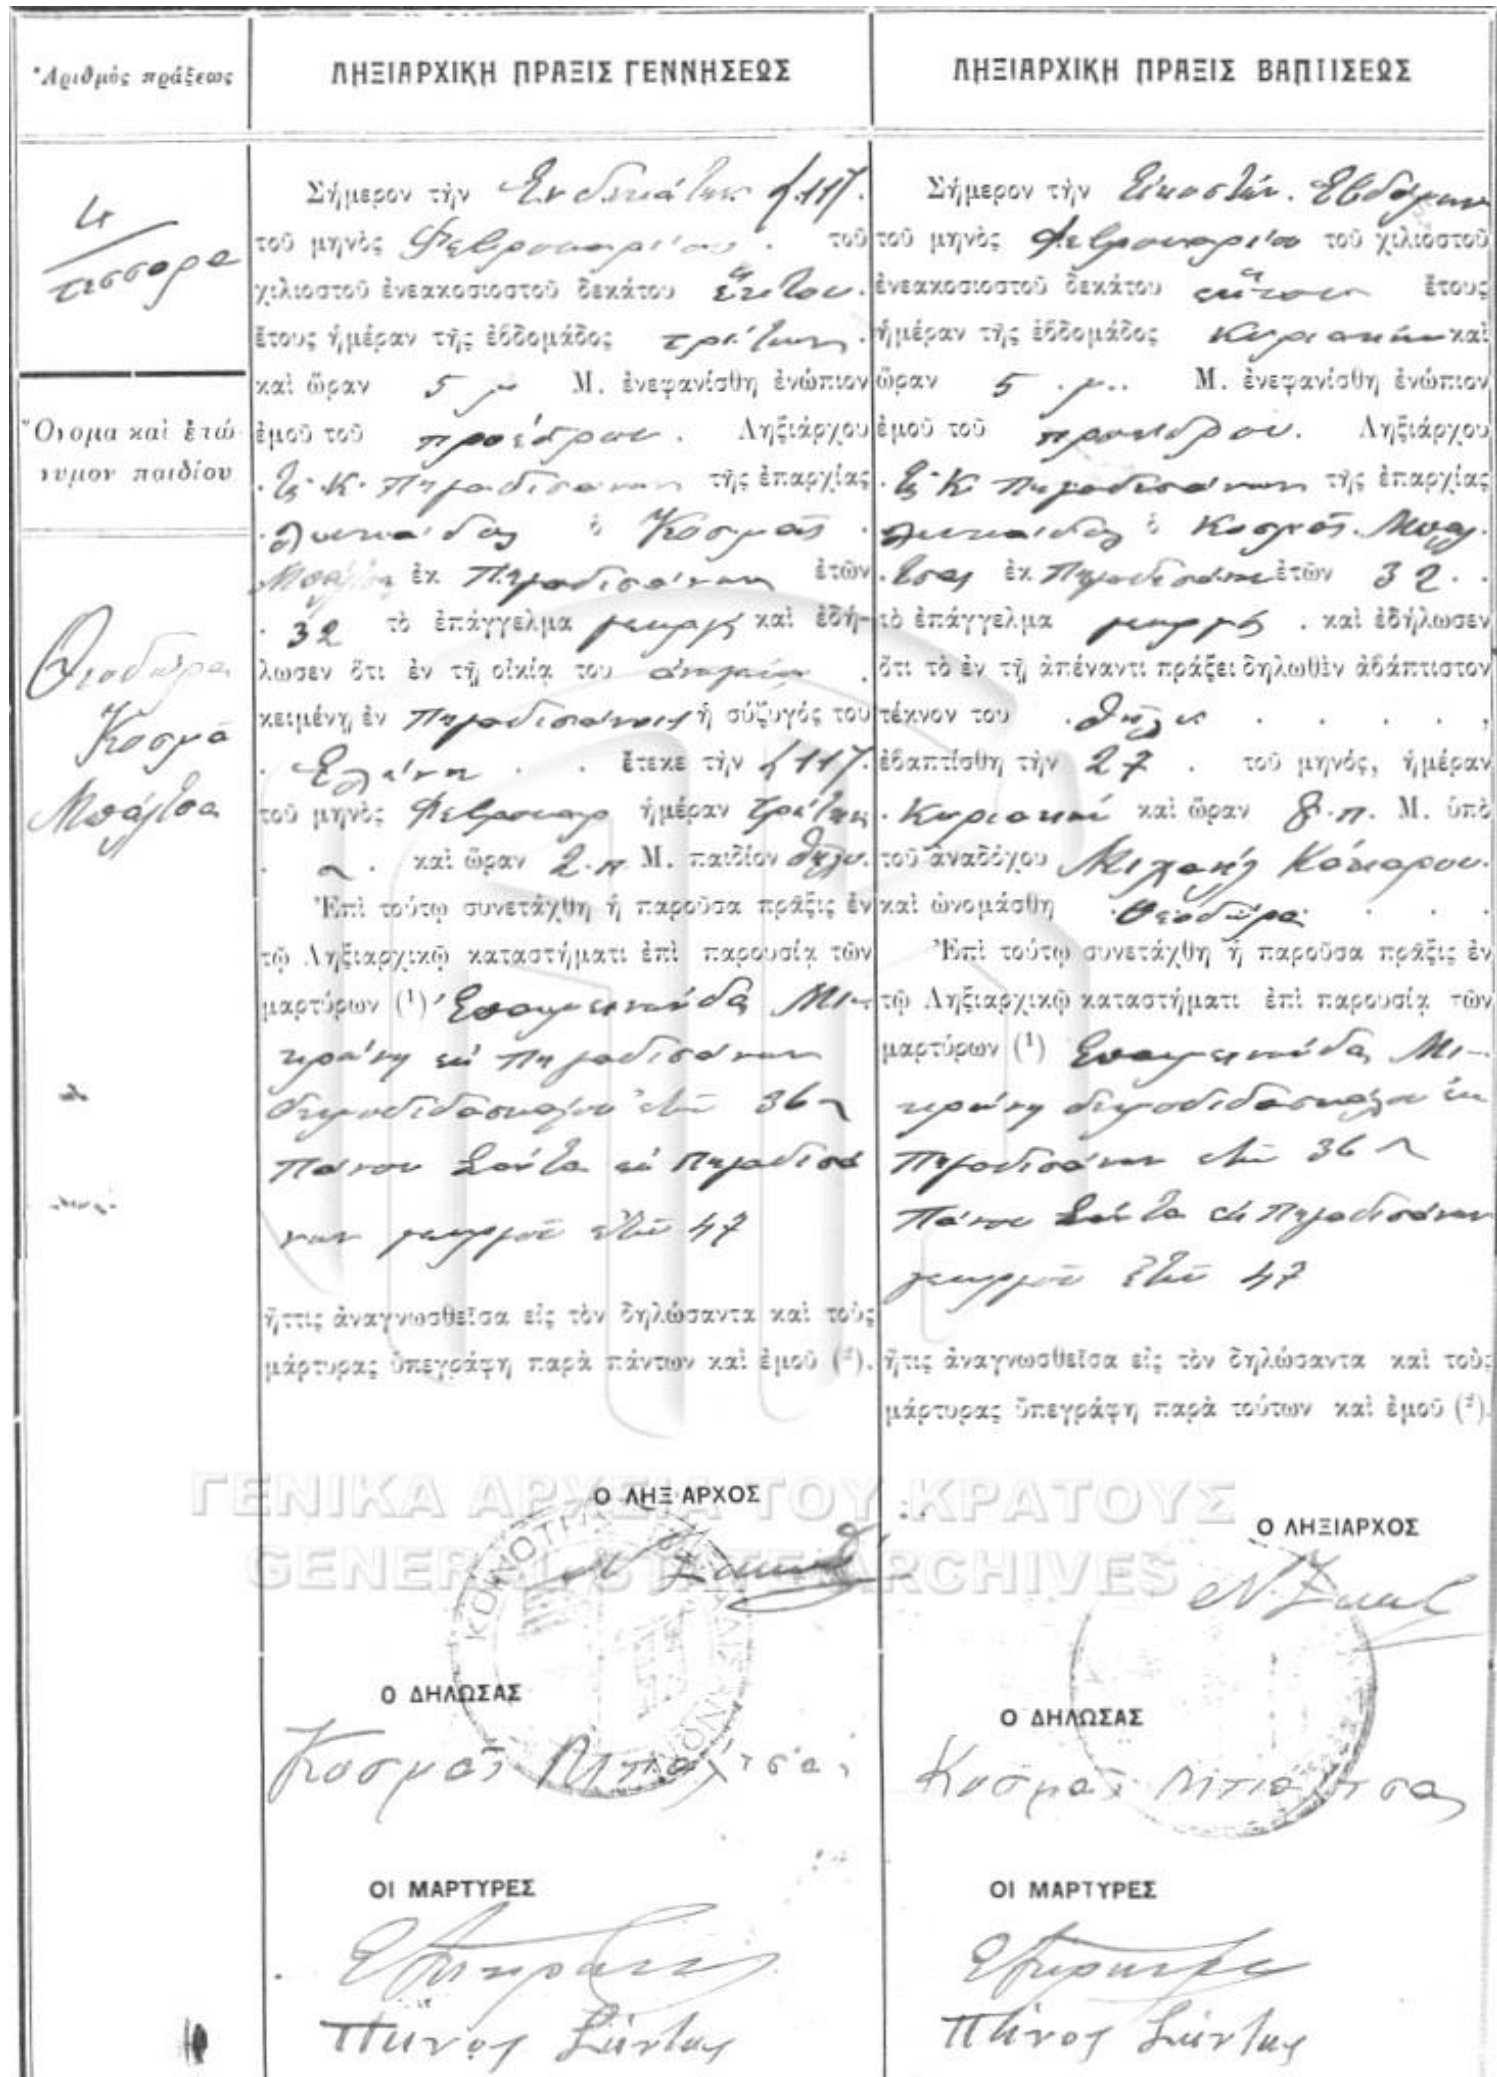 Ἀριθμὸς πράξεως
ΛΗΞΙΑΡΧΙΚΗ ΠΡΑΞΙΣ ΓΕΝΝΗΣΕΩΣ
ΛΗΞΙΑΡΧΙΚΗ ΠΡΑΞΙΣ ΒΑΠΤΙΣΕΩΣ
4
τέσσαρα
Ὄνομα καὶ ἐπώ
νυμον παιδίου
Θεοδώρα
Κοσμᾶ
Μπάλτσα
Σήμερον τὴν Ἑνδεκάτην (11).
τοῦ μηνὸς Φεβρουαρίου . τοῦ
χιλιοστοῦ ἐνεακοσιοστοῦ δεκάτου ἕκτου.
ἔτους ἡμέραν τῆς ἑβδομάδος τρίτην.
καὶ ὥραν 5 μ Μ. ἐνεφανίσθη ἐνώπιον
ἐμοῦ τοῦ προέδρου. Ληξιάρχου
τῆς Κ. Πηγαδισάνων τῆς ἐπαρχίας
Λευκάδος ὁ Κοσμᾶς
Μπάλτσας ἐκ Πηγαδισάνων ἐτῶν
32 τὸ ἐπάγγελμα γεωργὸς καὶ ἐδή-
λωσεν ὅτι ἐν τῇ οἰκίᾳ του
κειμένῃ ἐν Πηγαδισάνοις ἡ σύζυγός του
Ἑλένη . . ἔτεκε τὴν (11).
τοῦ μηνὸς Φεβρουαρ ἡμέραν τρίτην
καὶ ὥραν 2.π. Μ. παιδίον θῆλυ.
Ἐπὶ τούτῳ συνετάχθη ἡ παροῦσα πρᾶξις ἐν
τῷ Ληξιαρχικῷ καταστήματι ἐπὶ παρουσίᾳ τῶν
μαρτύρων (1) Ἐπαμεινώνδα Μι-
κρώνη ἐκ Πηγαδισάνων
δημοδιδασκάλου ἐτῶν 36
Πάνου Σάντα ἐκ Πηγαδισά
νων γεωργοῦ ἐτῶν 47
ἥττις ἀναγνωσθεῖσα εἰς τὸν δηλώσαντα καὶ τοὺς
μάρτυρας ὑπεγράφη παρὰ πάντων καὶ ἐμοῦ (2).
Ο ΛΗΞΙΑΡΧΟΣ
Ο ΔΗΛΩΣΑΣ
Κοσμᾶς Μπάλτσας
ΟΙ ΜΑΡΤΥΡΕΣ
Πάνος Σάντας
Σήμερον τὴν Εἰκοστὴν. Ἑβδόμην
τοῦ μηνὸς Φεβρουαρίου τοῦ χιλιοστοῦ
ἐνεακοσιοστοῦ δεκάτου ἕκτου ἔτους
ἡμέραν τῆς ἑβδομάδος Κυριακὴν καὶ
ὥραν 5 . μ.. Μ. ἐνεφανίσθη ἐνώπιον
ἐμοῦ τοῦ προέδρου. Ληξιάρχου
τῆς Κ Πηγαδισάνων τῆς ἐπαρχίας
Λευκάδος ὁ Κοσμᾶς. Μπάλ.
τσας ἐκ Πηγαδισάνων ἐτῶν 32 . .
τὸ ἐπάγγελμα γεωργὸς . καὶ ἐδήλωσεν
ὅτι τὸ ἐν τῇ ἀπέναντι πράξει δηλωθὲν ἀβάπτιστον
τέκνον του . θῆλυ . . . . ,
ἐβαπτίσθη τὴν 27 . τοῦ μηνός, ἡμέραν
. Κυριακὴν καὶ ὥραν 8.π. Μ. ὑπὸ
τοῦ ἀναδόχου Μιχαὴλ
καὶ ὠνομάσθη Θεοδώρα . . .
Ἐπὶ τούτῳ συνετάχθη ἡ παροῦσα πρᾶξις ἐν
τῷ Ληξιαρχικῷ καταστήματι ἐπὶ παρουσίᾳ τῶν
μαρτύρων (1) Ἐπαμεινώνδα Μι-
κρώνη δημοδιδασκάλου ἐκ
Πηγαδισάνων ἐτῶν 36
Πάνου Σάντα ἐκ Πηγαδισάνων
γεωργοῦ ἐτῶν 47
ἥτις ἀναγνωσθεῖσα εἰς τὸν δηλώσαντα καὶ τοὺς
μάρτυρας ὑπεγράφη παρὰ τούτων καὶ ἐμοῦ (2).
Ο ΛΗΞΙΑΡΧΟΣ
Ο ΔΗΛΩΣΑΣ
Κοσμᾶς Μπάλτσας
ΟΙ ΜΑΡΤΥΡΕΣ
Πάνος Σάντας
ΓΕΝΙΚΑ ΑΡΧΕΙΑ ΤΟΥ ΚΡΑΤΟΥΣ
GENERAL STATE ARCHIVES